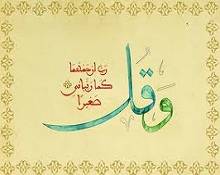 وقل
رب ارحمهما
كما ربياني
صغيرا